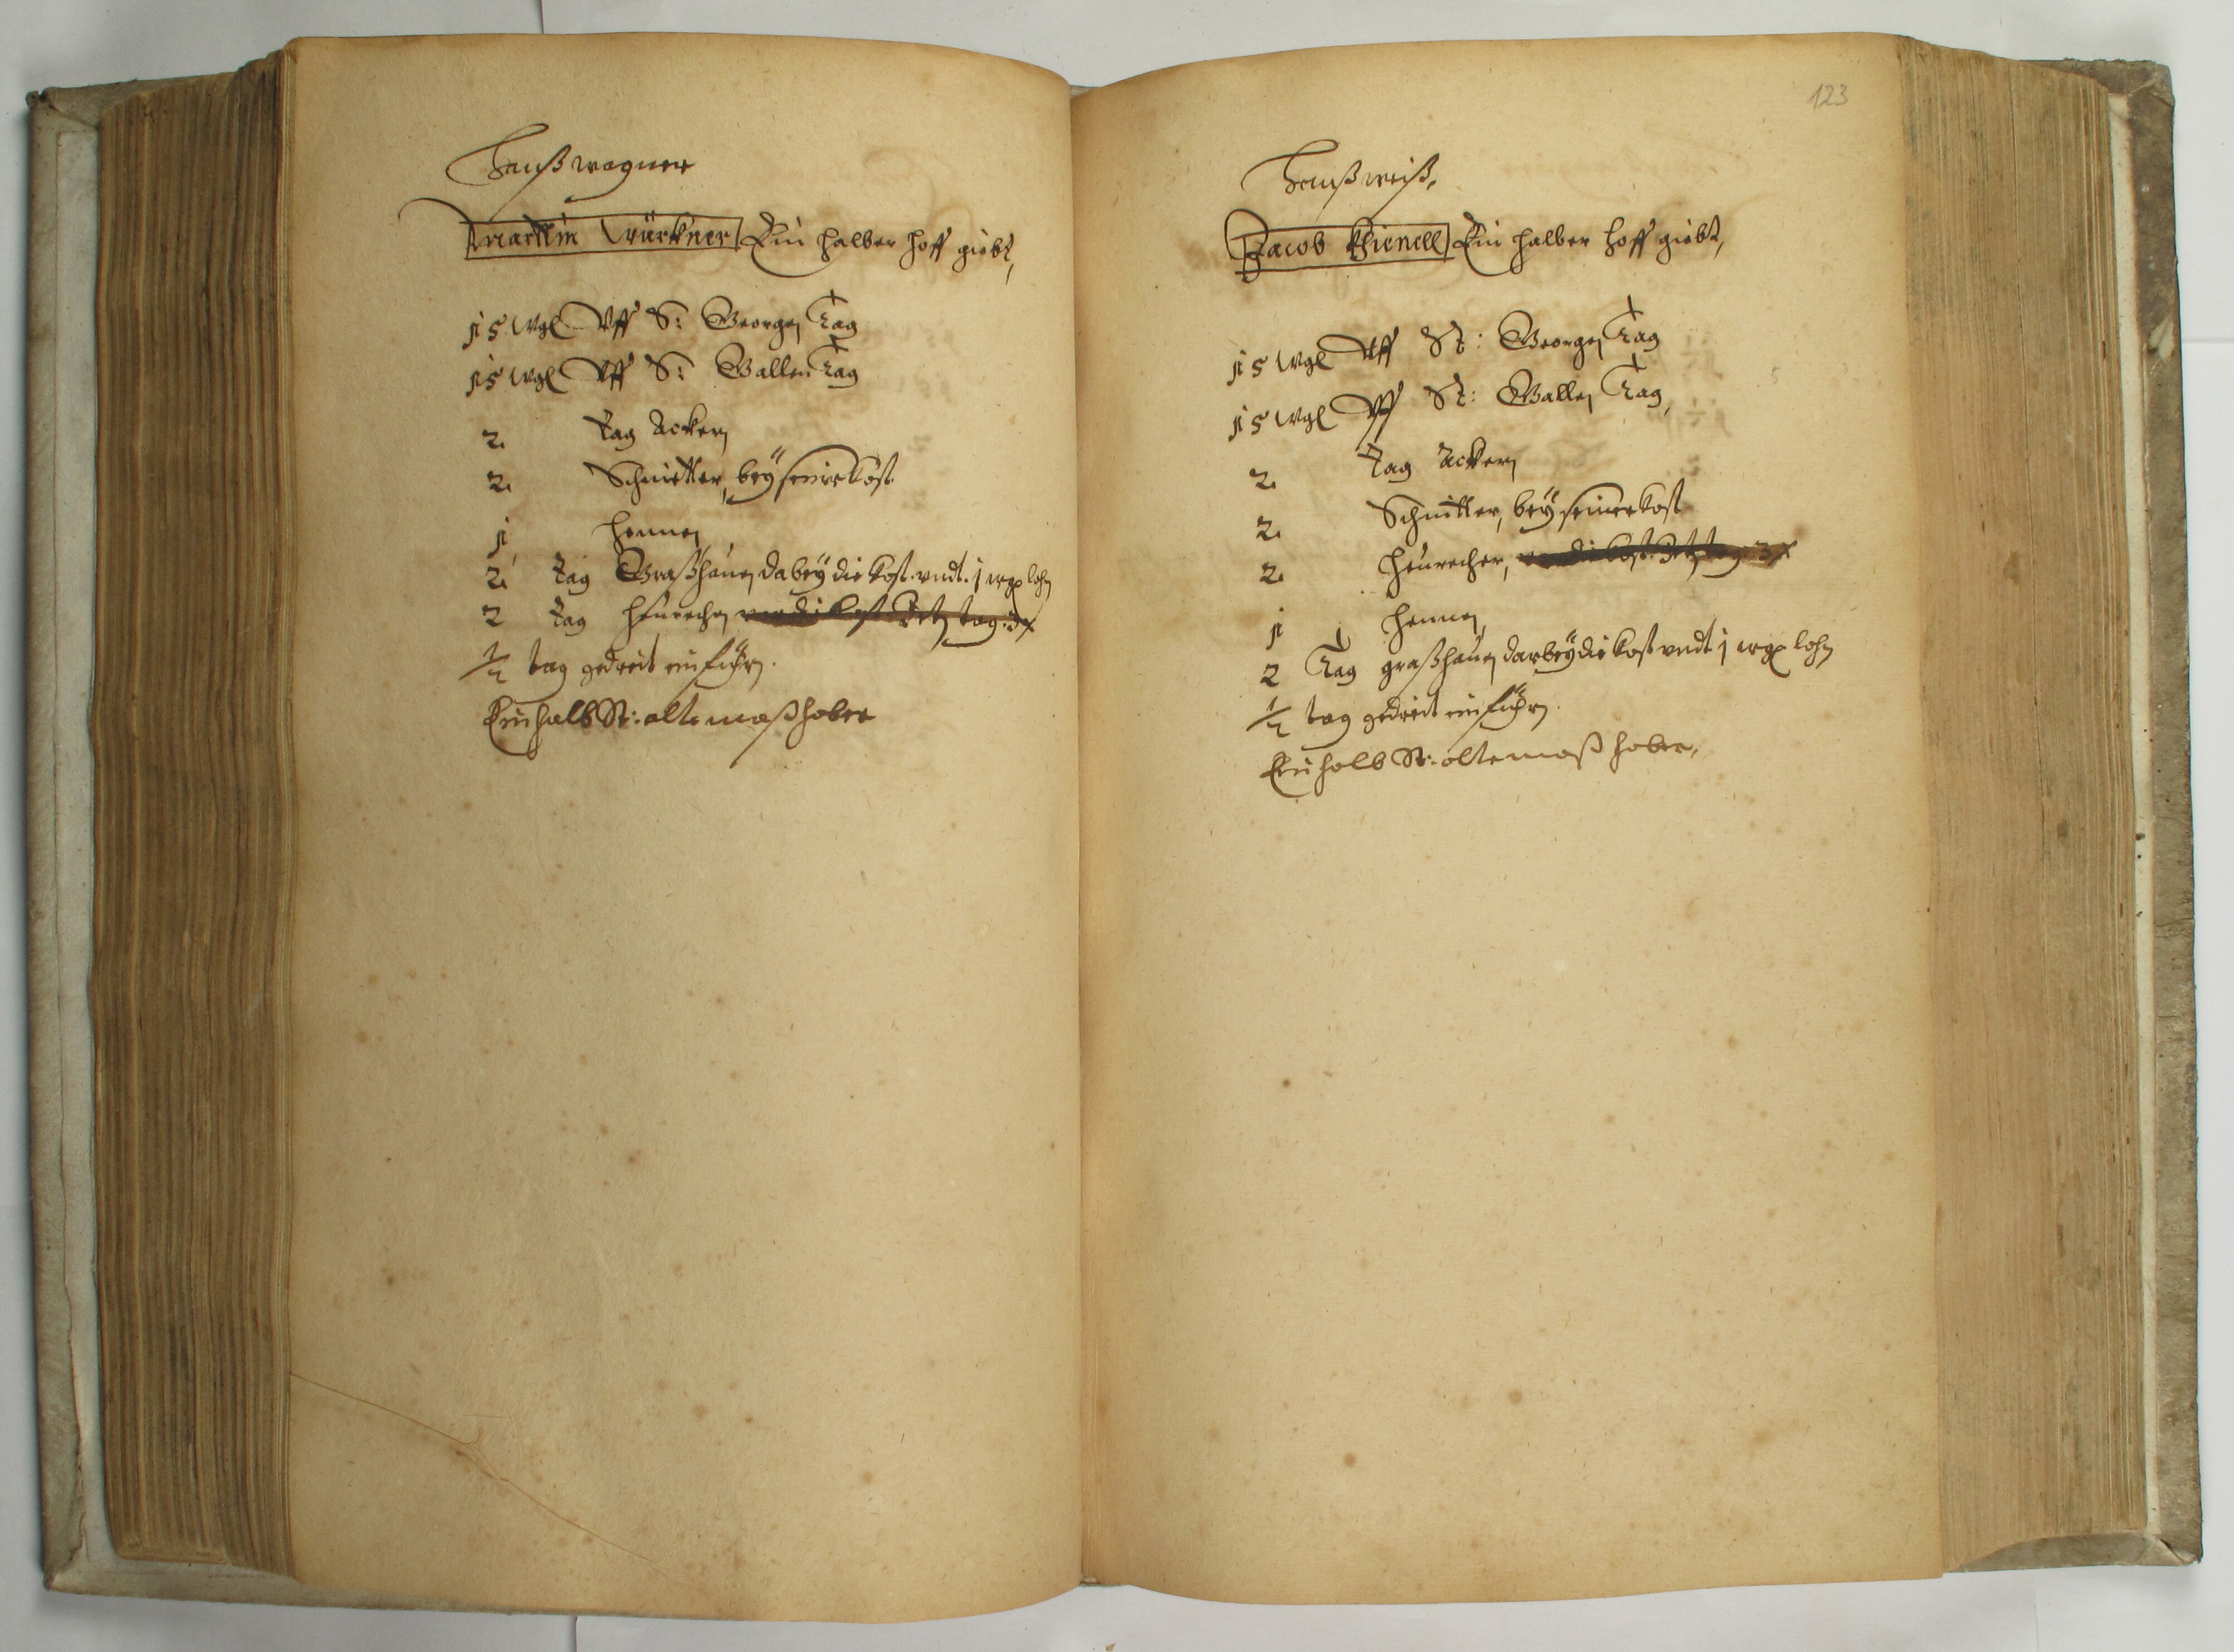 Hanß wagner
Martthin Würkner Ein halber hoff giebt,
15 wgl Vff S: Georgen Tag
15 wgl Vff S: Gallen Tag
2. tag Ackern
2. Schnitter, bey seiner kost
1 hennen
2. tag Graßhauen dabey die kost. vndt. 1 wgl lohn
2 tag heurechen vor die kost Jeden tag. 3 x
1/2 tag gedreit einfüren.
Ein halb Str: alte maß haber
123
Hanß weiß,
Jacob Khienell Ein halber hoff giebt,
15 wgl Vff St: Georgen Tag
15 wgl Vff St: Gallen Tag,
2. tag Ackern
2. Schnitter, bey seiner kost
2. heurecher, vor die kost. Jeden tag. 3 x
1 hennen,
2 Tag graßhauen darbey die kost vndt 1 wgl lohn
1/2 tag gedreit einfüren.
Ein halb Str: alte maß haber,